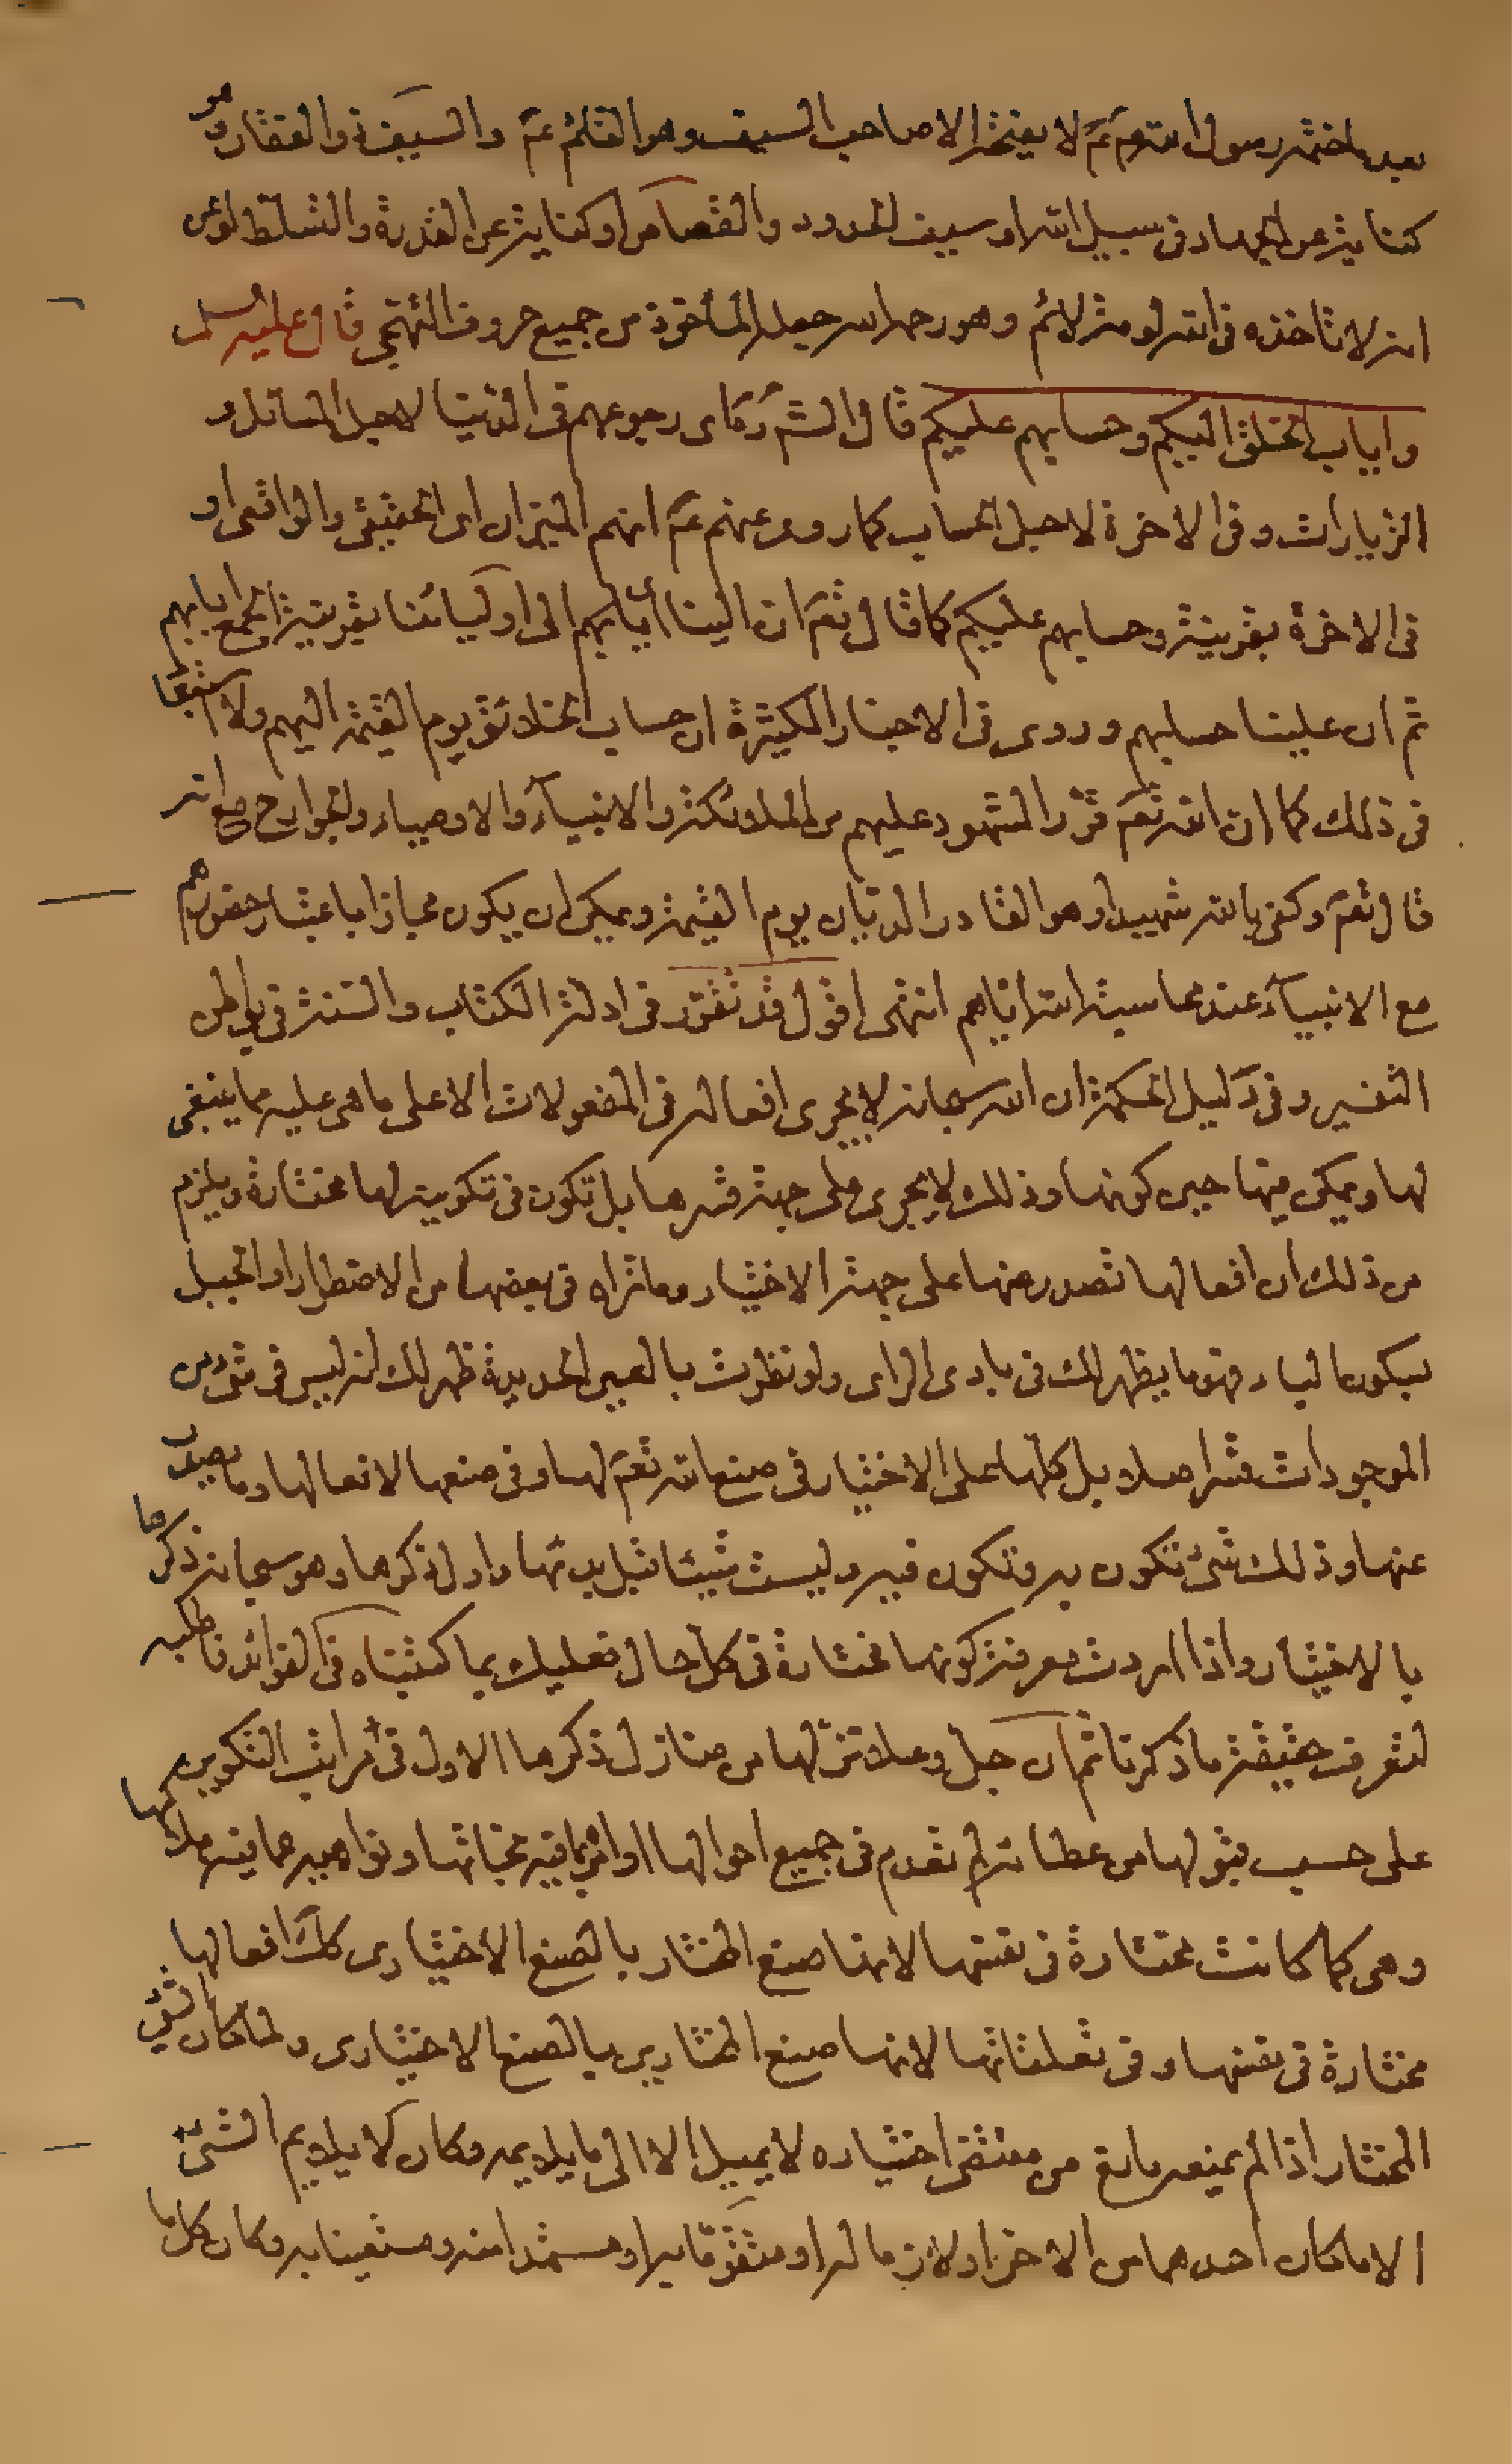 بعد ما ختمه رسول الله صم ثم لا يفتحه الا صاحب السيف وهو القائم عم والسيف ذو الفقار وهو
كناية عن الجهاد في سبيل الله او سيف الحدود والقصاص او كناية عن القدرة والتسلط لوعى
انه لا تاخذه في الله لومة لائم وهو رحمه الله جعله المأخوذ من جميع حروف التهجى قال عليه السلم
واياب الخلق اليكم وحسابهم عليكم قال الشر ره اى رجوعهم في الدنيا لاجل المسائل و
الزيارات وفى الاخرة لاجل الحساب كما روى عنهم عم انهم الميزان اى الحقيقى والواقعى او
في الاخرة بقرينة وحسابهم عليكم كما قال تعم ان الينا ايابهم الى اوليائنا بقرينة الجمع ايابهم
ثم ان علينا حسابهم وروى في الاخبار الكثيرة ان حساب الخلائق يوم القيمة اليهم ولا استبعاد
في ذلك كما ان الله تعم قرر الشهود عليهم من الملائكة والانبياء والاوصياء والجوارح مع انه
قال تعم وكفى بالله شهيدا وهو القادر الديان يوم القيمة ويمكن ان يكون مجازا باعتبار حضورهم
مع الانبياء عند محاسبة الله اياهم انتهى اقول قد تقرر في ادلة الكتاب والسنة في باطن
التفسير وفى دليل الحكمة ان الله سبحانه لا يجرى افعاله في المفعولات الا على ما هى عليه مما ينبغى
لها ويمكن فيها حين كونها وذلك لا يجرى على جهة قسرها بل تكون في تكوينه لها مختارة ويلزم
من ذلك ان افعالها تصدر عنها على جهة الاختيار وما تراه في بعضها من الاضطرار او الجبل
فيهو ما يظهر لك في بادى الراى ولو نظرت بالعين الحديدة ظهر لك انه ليس في شئ من
الموجودات قسر اصلا بل كلها على الاختيار في صنع الله تعم لها وفى صنعها لافعالها وما يصدر
عنها وذلك شئ تكون به وتكون فيه وليست شيئا قبل بدئها واول ذكرها وهو سبحانه ذكرها
بالاختيار واذا اردت معرفة كونها مختارة في كل حال فعليك بما كتبناه في الفوائد فاطلبه
لتعرف حقيقة ما ذكرنا ثم ان جل وعلا تنزلها من منازل ذكرها الاول في مراتب التكوين
على حسب قبولها من عطائه لم تعدم في جميع احوالها اوامره بما فيه نجاتها ونواهيه عما فيه هلاكها
وهى كما كانت مختارة في نفسها لانها صنع المختار بالصنع الاختيارى كك افعالها
مختارة في نفسها وفى تعلقاتها لانها صنع المختارين بالصنع الاختيارى ولما كان الشئ
المختار اذا لم يمنعه مانع من مقتضى اختياره لا يميل الا الى ما يلايمه وكان لا يلايم الشئ
الا ما كان احدهما من الاخر او لازما له او متقوما به او مستمدا منه ومستعينا به وكان كل ما